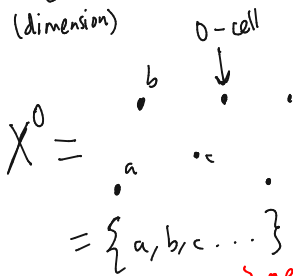 (dimension)
0-cell
b
X⁰ =
a
c
= {a, b, c ...}